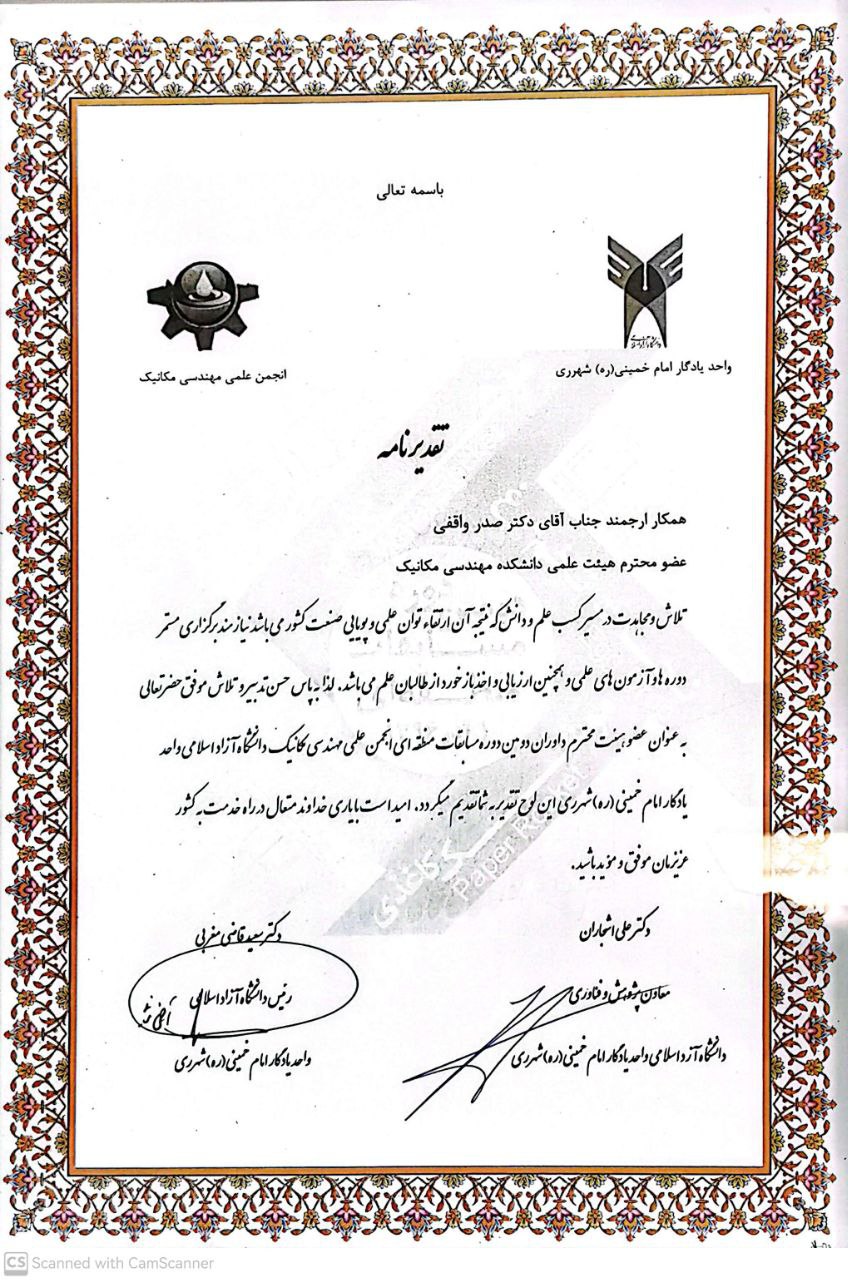 باسمه تعالی
واحد یادگار امام خمینی(ره) شهرری
انجمن علمی مهندسی مکانیک
تقدیرنامه
همکار ارجمند جناب آقای دکتر صدر واقفی
عضو محترم هیئت علمی دانشکده مهندسی مکانیک
تلاش و مجاهدت در مسیر کسب علم و دانش که نتیجه آن ارتقاء توان علمی و پویایی صنعت کشور می باشد نیازمند برگزاری مستمر
دوره ها و آزمون های علمی و همچنین ارزیابی و اخذ بازخورد از طالبان علم می باشد. لذا به پاس حسن تدبیر و تلاش موفق حضرتعالی
به عنوان عضو هیئت محترم داوران دومین دوره مسابقات منطقه ای انجمن علمی مهندسی مکانیک دانشگاه آزاد اسلامی واحد
یادگار امام خمینی (ره) شهرری این لوح تقدیر به شما تقدیم میگردد. امید است با یاری خداوند متعال در راه خدمت به کشور
عزیزمان موفق و مؤید باشید.
کاغذی
Paper Rocket
دکتر علی اشجاران
معاون پژوهش و فناوری
دانشگاه آزاد اسلامی واحد یادگار امام خمینی (ره) شهرری
دکتر سعید قاضی مغربی
رئیس دانشگاه آزاد اسلامی
واحد یادگار امام خمینی (ره) شهرری
CS Scanned with CamScanner